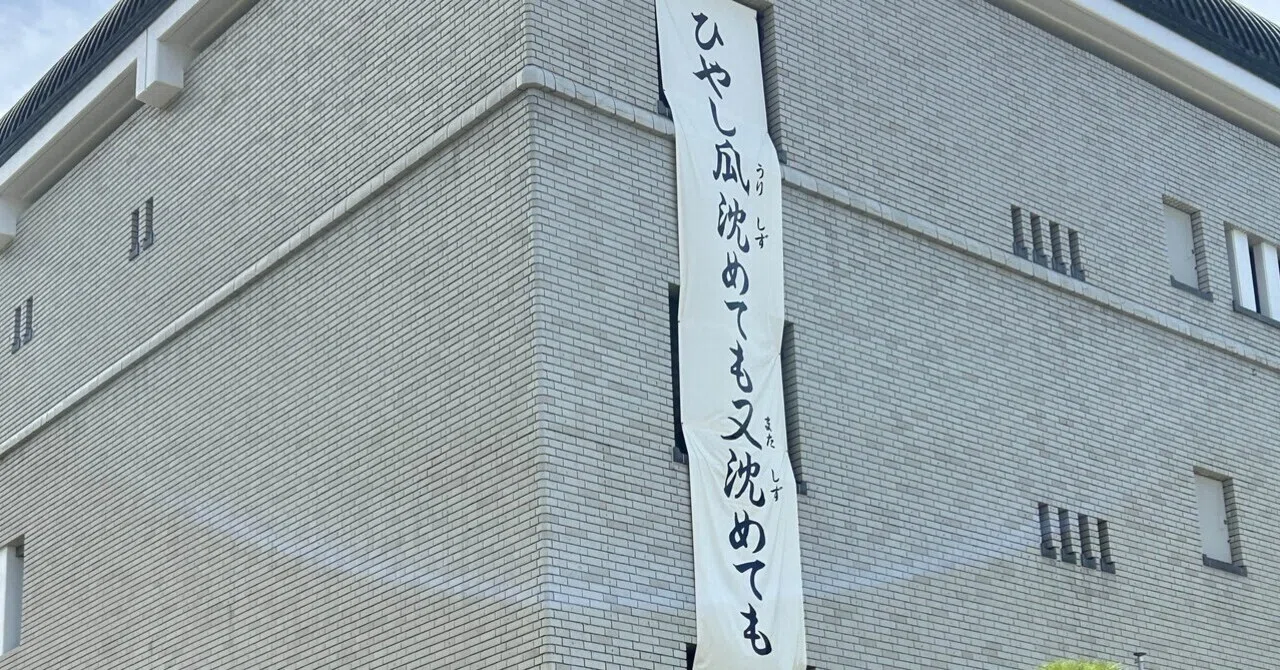 ひやし瓜沈めても又沈めても
うり
しず
また
しず